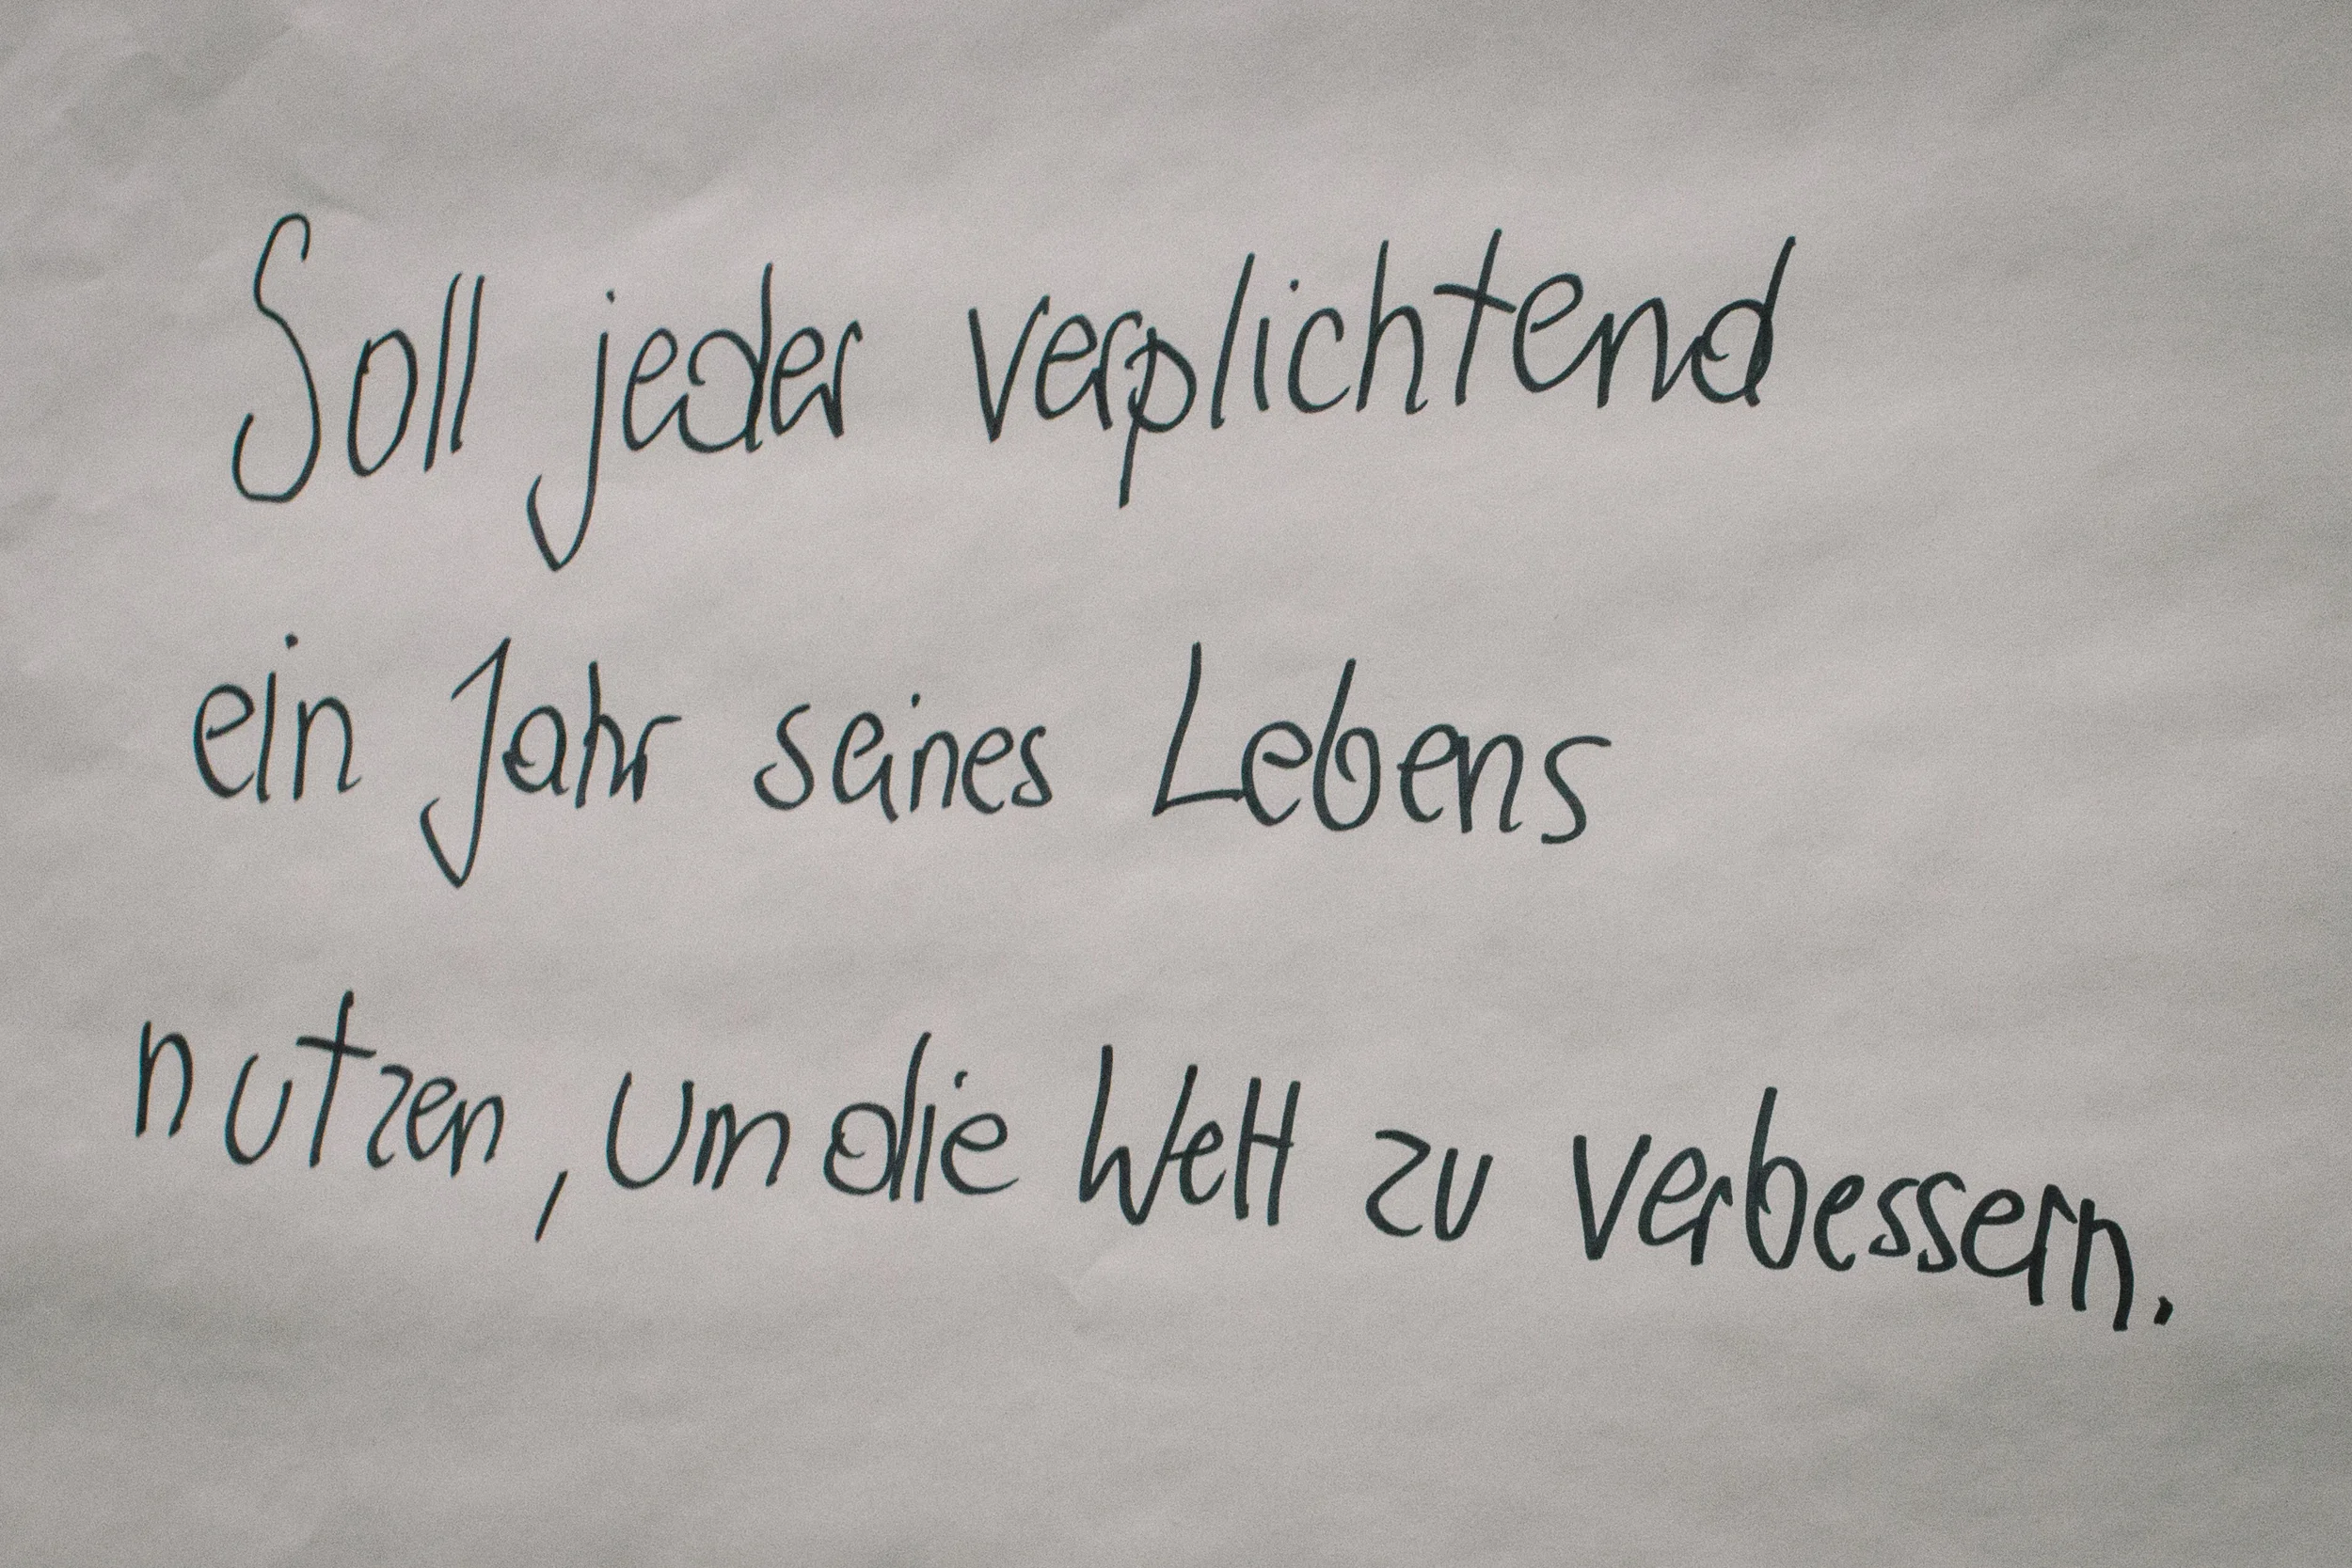 Soll jeder verplichtend
ein Jahr seines Lebens
nutzen, um die Welt zu verbessern.